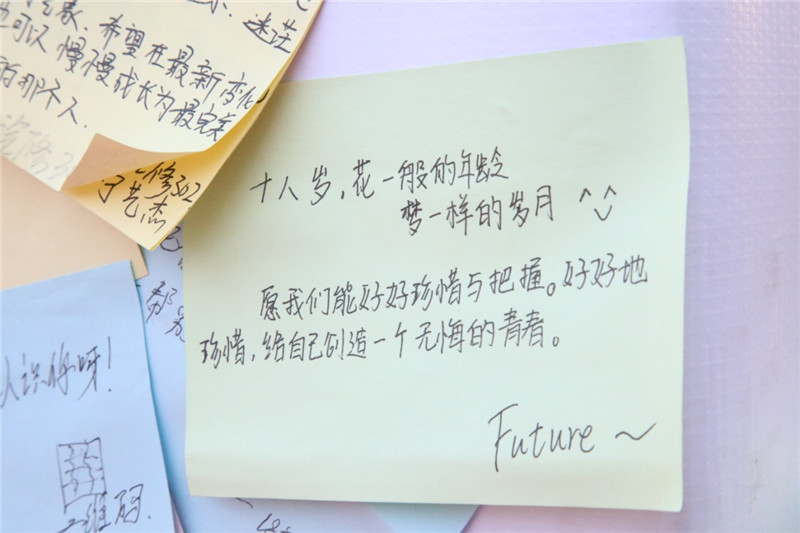 迷茫
希望在最新变化
也可以慢慢成长为最完美
的那个人.
一修302
于艺杰
十八岁,花一般的年龄
梦一样的岁月 ^^
愿我们能好好珍惜与把握。好好地
珍惜,给自己创造一个无悔的青春。
Future ~
认识你呀!
二维码.